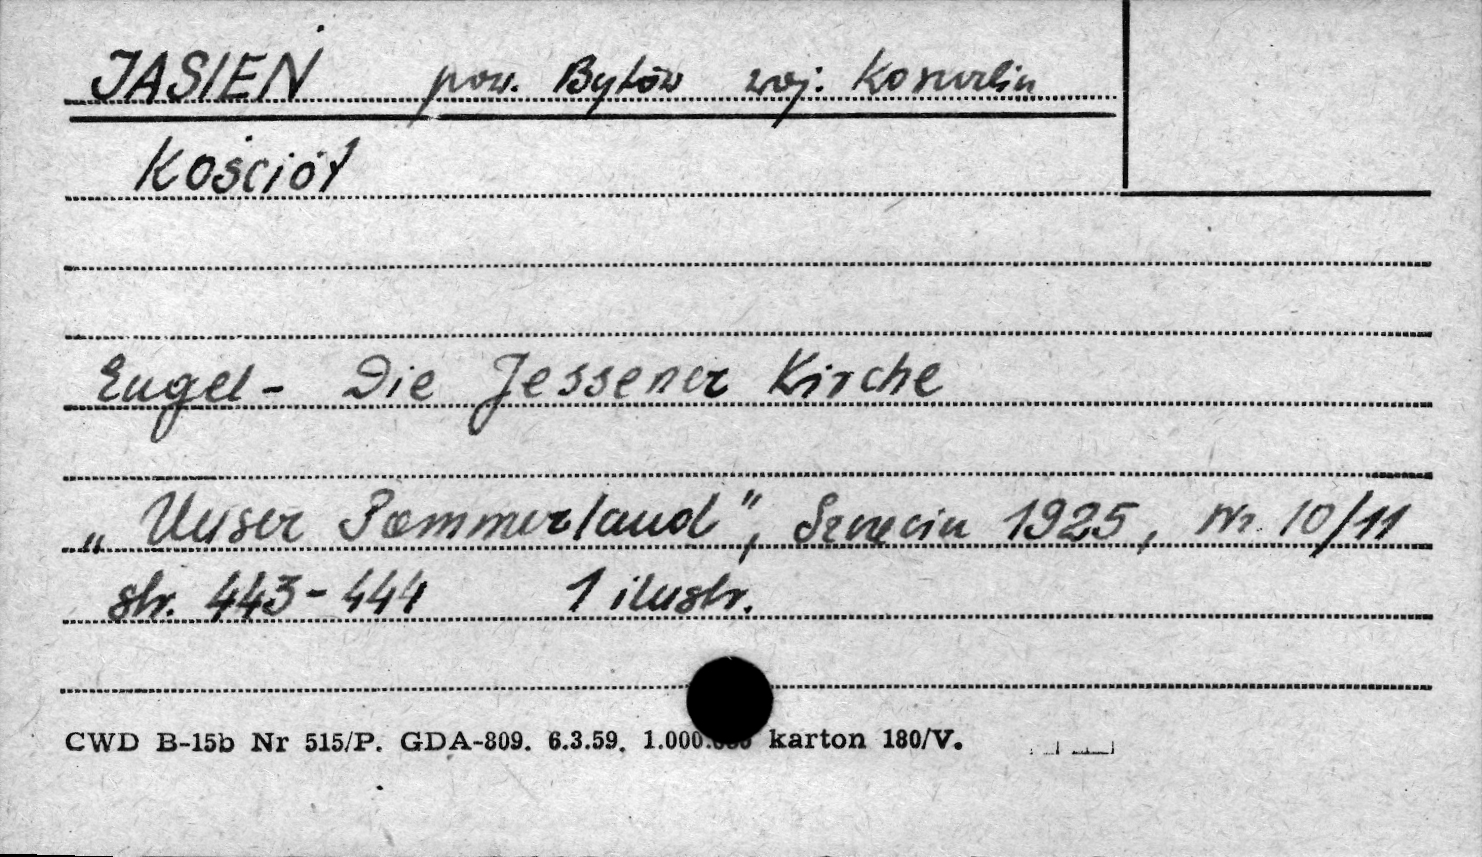 JASIEŃ pow. Bytów woj. Koszalin
Kościół
Engel - Die Jessener Kirche
„Unser Pommerland", Szczecin 1925, Nr. 10/11
str. 443-444 1 ilustr.
CWD B-15b Nr 515/P. GDA-809. 6.3.59. 1.000.000 karton 180/V.